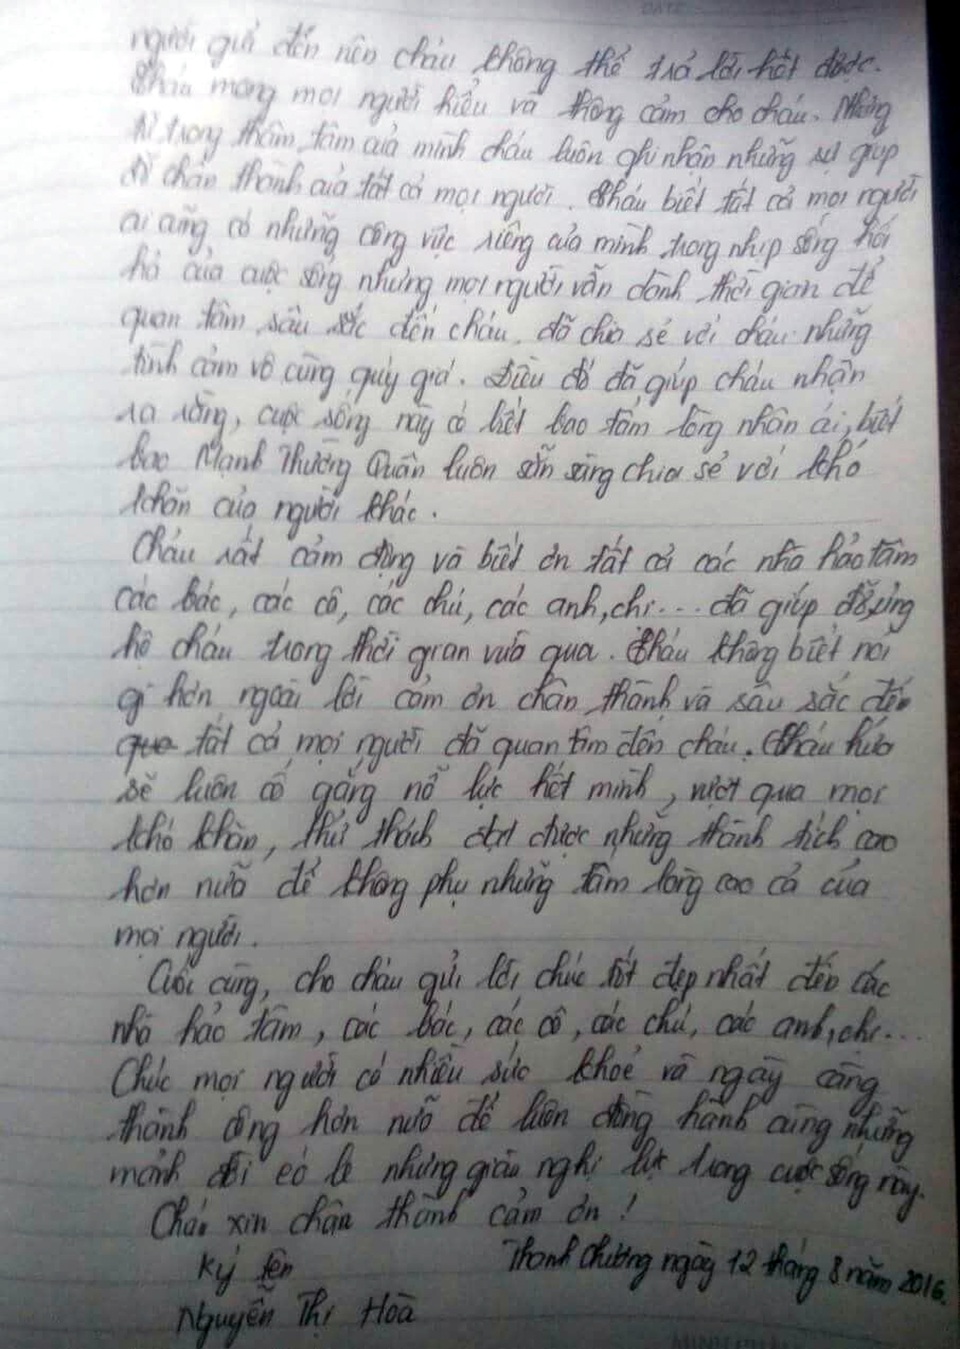 người gửi đến nên cháu không thể trả lời hết được.
Cháu mong mọi người hiểu và thông cảm cho cháu. Nhưng
từ trong thâm tâm của mình cháu luôn ghi nhận những sự giúp
đỡ chân thành của tất cả mọi người. Cháu biết tất cả mọi người
ai cũng có những công việc riêng của mình trong nhịp sống hối
hả của cuộc sống nhưng mọi người vẫn dành thời gian để
quan tâm sâu sắc đến cháu, đã chia sẻ với cháu những
tình cảm vô cùng quý giá. Điều đó đã giúp cháu nhận
ra rằng, cuộc sống này có biết bao tấm lòng nhân ái, biết
bao Mạnh Thường Quân luôn sẵn sàng chia sẻ với khó
khăn của người khác.
Cháu rất cảm động và biết ơn tất cả các nhà hảo tâm
các bác, các cô, các chú, các anh, chị... đã giúp đỡ, ủng
hộ cháu trong thời gian vừa qua. Cháu không biết nói
gì hơn ngoài lời cảm ơn chân thành và sâu sắc đến
tất cả mọi người đã quan tâm đến cháu. Cháu hứa
sẽ luôn cố gắng nỗ lực hết mình, vượt qua mọi
khó khăn, thử thách đạt được những thành tích cao
hơn nữa để không phụ những tấm lòng cao cả của
mọi người.
Cuối cùng, cho cháu gửi lời chúc tốt đẹp nhất đến các
nhà hảo tâm, các bác, các cô, các chú, các anh, chị...
Chúc mọi người có nhiều sức khoẻ và ngày càng
thành công hơn nữa để luôn đồng hành cùng những
mảnh đời éo le nhưng giàu nghị lực trong cuộc sống này.
Cháu xin chân thành cảm ơn!
Ký tên Thanh Chương ngày 12 tháng 8 năm 2016.
Nguyễn Thị Hoà